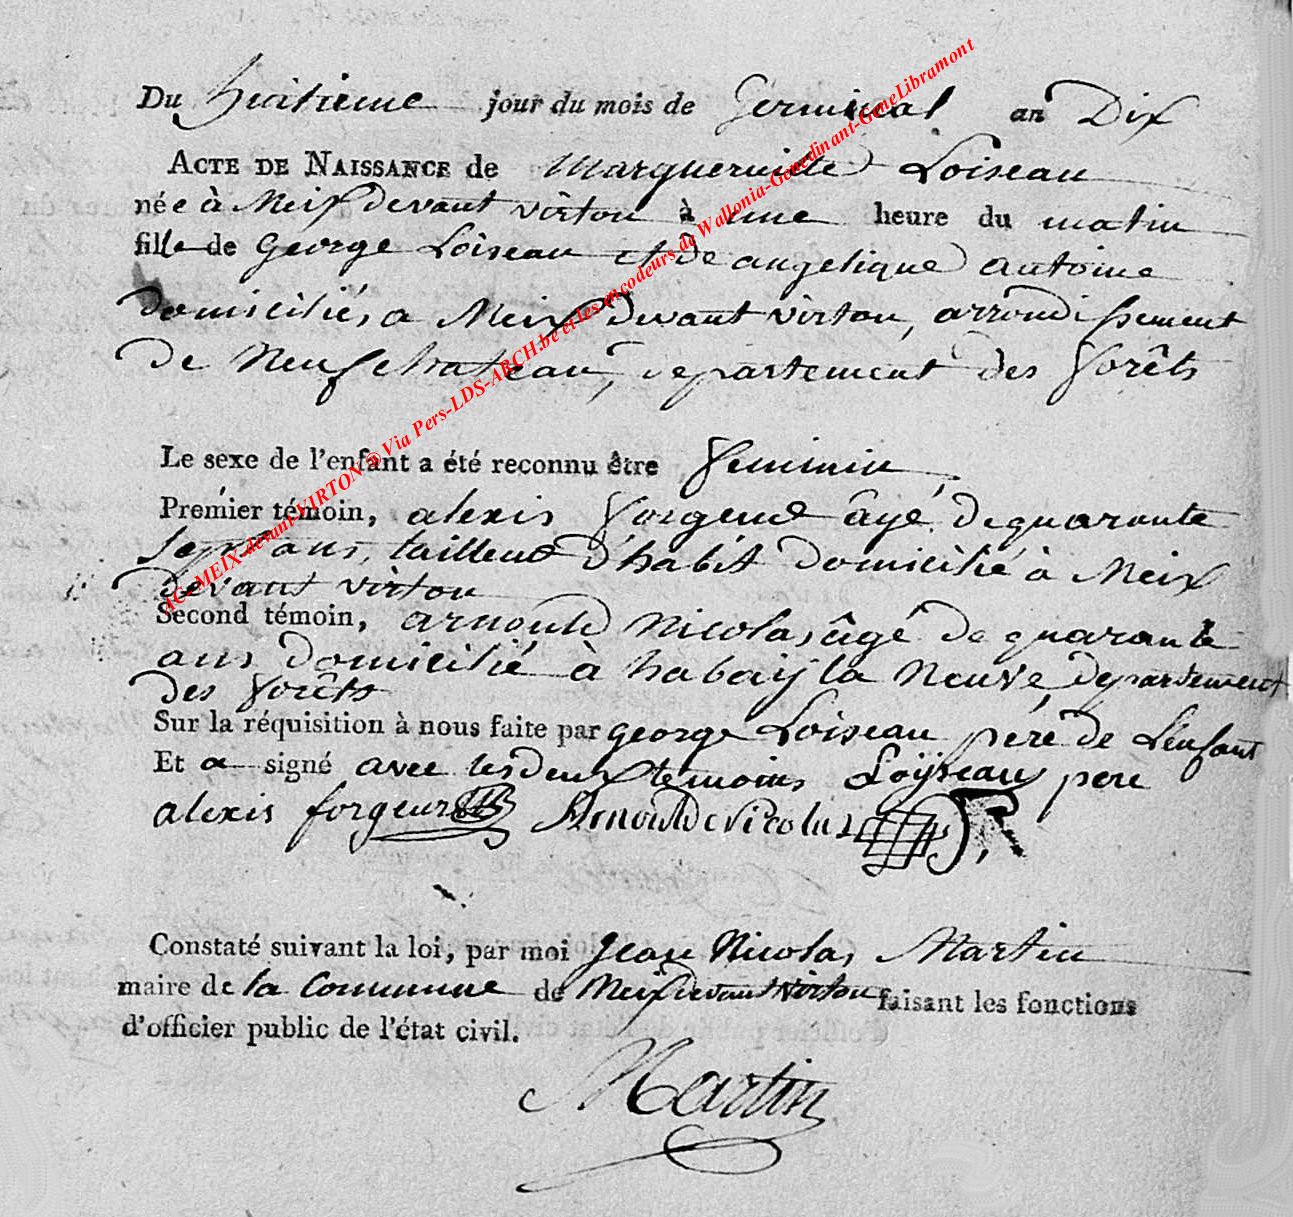 Du huitieme jour du mois de Germinal an Dix
ACTE DE NAISSANCE de Margueritte Loiseau
née à Meix devant virton à une heure du matin
fille de George Loiseau et de angelique antoine
domiciliés a Meix devant virton, arrondissement
de Neufchateau, departement des forêts
Le sexe de l'enfant a été reconnu être feminin
Premier témoin, alexis forgeur âgé de quarante
sept ans, tailleur d'habit domicilié à Meix
devant virton
Second témoin, arnould Nicolas âgé de quarante
ans domicilié à habaÿ la Neuve, departement
des forêts
Sur la réquisition à nous faite par george Loiseau pére de L'enfant
Et a signé avec les deux temoins Loÿseau pere
alexis forgeur Arnould Nicolas
Constaté suivant la loi, par moi Jean Nicolas Martin
maire de la Commune de Meix devant virton faisant les fonctions
d'officier public de l'état civil.
Martin
AC-MEIX-devant-VIRTON @ Via Pers-LDS-ARCH.be et les encodeurs de Wallonia-Genedinant-GeneLibramont